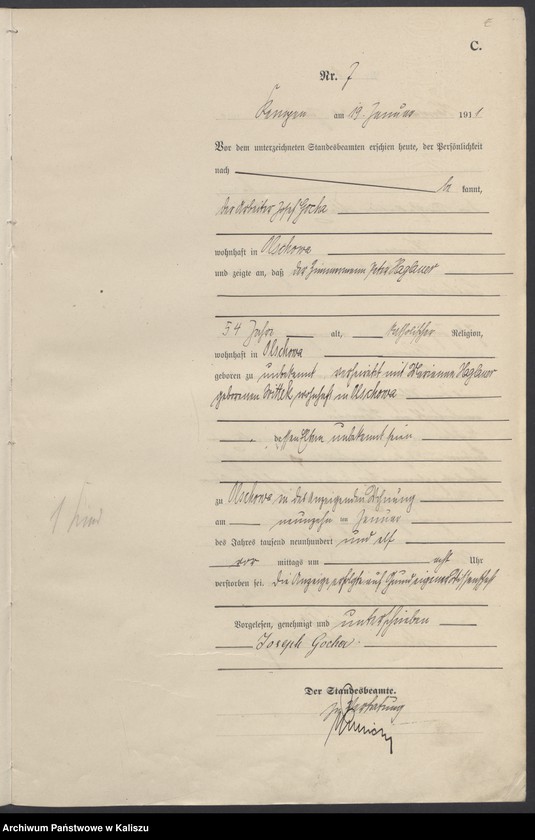 C.
Nr. 7
Kempen am 19 Januar 1911
Vor dem unterzeichneten Standesbeamten erschien heute, der Persönlichkeit
nach
be kannt,
der Arbeiter Josef Gocha
wohnhaft in Olschowa
und zeigte an, daß der Zimmermann Peter Haglauer
54 Jahre alt, katholischer Religion,
wohnhaft in Olschowa
geboren zu unbekannt verheiratet mit Marianna Haglauer
geborenen Wittek, wohnhaft in Olschowa
dessen Eltern unbekannt sein
zu Olschowa, in des Anzeigenden Wohnung
am neunzehn ten Januar
des Jahres tausend neunhundert und elf
vor mittags um acht Uhr
verstorben sei. Die Anzeige erfolgte auf Grund eigener Wissenschaft
Vorgelesen, genehmigt und unterschrieben
Joseph Gocha.
Der Standesbeamte.
In Vertretung
1 Kind
Archiwum Państwowe w Kaliszu